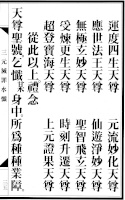 運度四生天尊　元流妙化天尊
應世法王天尊　仙遊淨妙天尊
無極玄妙天尊　聖智飛玄天尊
受煉更生天尊　時刻升遷天尊
超登寶海天尊　上元證果天尊
從此以上禮念
天尊聖號乞懺某身中所為種種業障
三元滅罪水懺